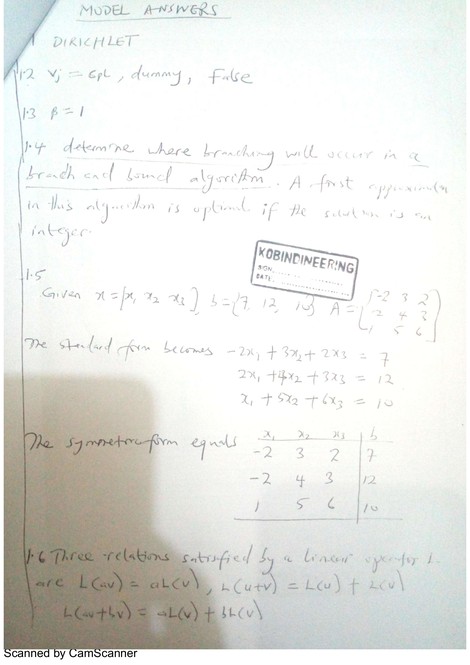 MODEL ANSWERS
1 DIRICHLET
1.2 Vj = GpL, dummy, False
1.3 β = 1
1.4 determine where branching will occur in a
branch and bound algorithm. A first
in this algorithm is optimal if the solution is an
integer.
KOBINDINEERING
DATE:
1.5
Given x = [x₁ x₂ x₃], b = [7, 12, 10] A = [-2 3 2
2 4 3
1 5 6]
The standard form becomes -2x₁ + 3x₂ + 2x3 = 7
2x₁ + 4x₂ + 3x3 = 12
x₁ + 5x₂ + 6x3 = 10
The symmetric form equals x₁ x₂ x₃ b
-2 3 2 7
-2 4 3 12
1 5 6 10
1.6 Three relations satisfied by a linear operator L
are L(av) = aL(v), L(u+v) = L(u) + L(v)
L(au+bv) = aL(u) + bL(v)
Scanned by CamScanner